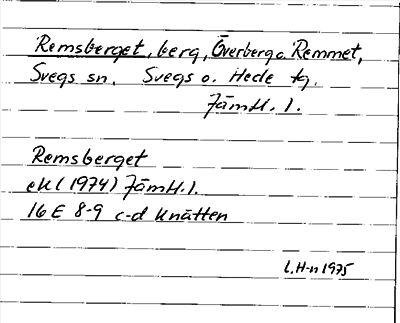 Remsberget, berg, Överberg o. Remmet,
Svegs sn. Svegs o. Hede tg.
Jämtl. l.
Remsberget
ek (1974) Jämtl. l.
16 E 8-9 c-d Knätten
L. H-n 1975